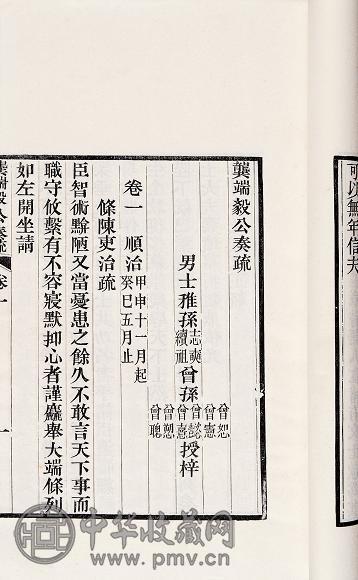 可以無年信夫
龔端毅公奏疏
男士稚孫志奭續祖曾孫曾恕曾憲曾懿曾憙曾懇曾聰授梓
卷一 順治甲申十一月起癸巳五月止
條陳吏治疏
臣智術黯陋又當憂患之餘久不敢言天下事而
職守攸繫有不容寢默抑心者謹麤舉大端條列
如左開坐請
龔端毅公奏疏 卷一 一
中华收藏网
www.pmv.cn